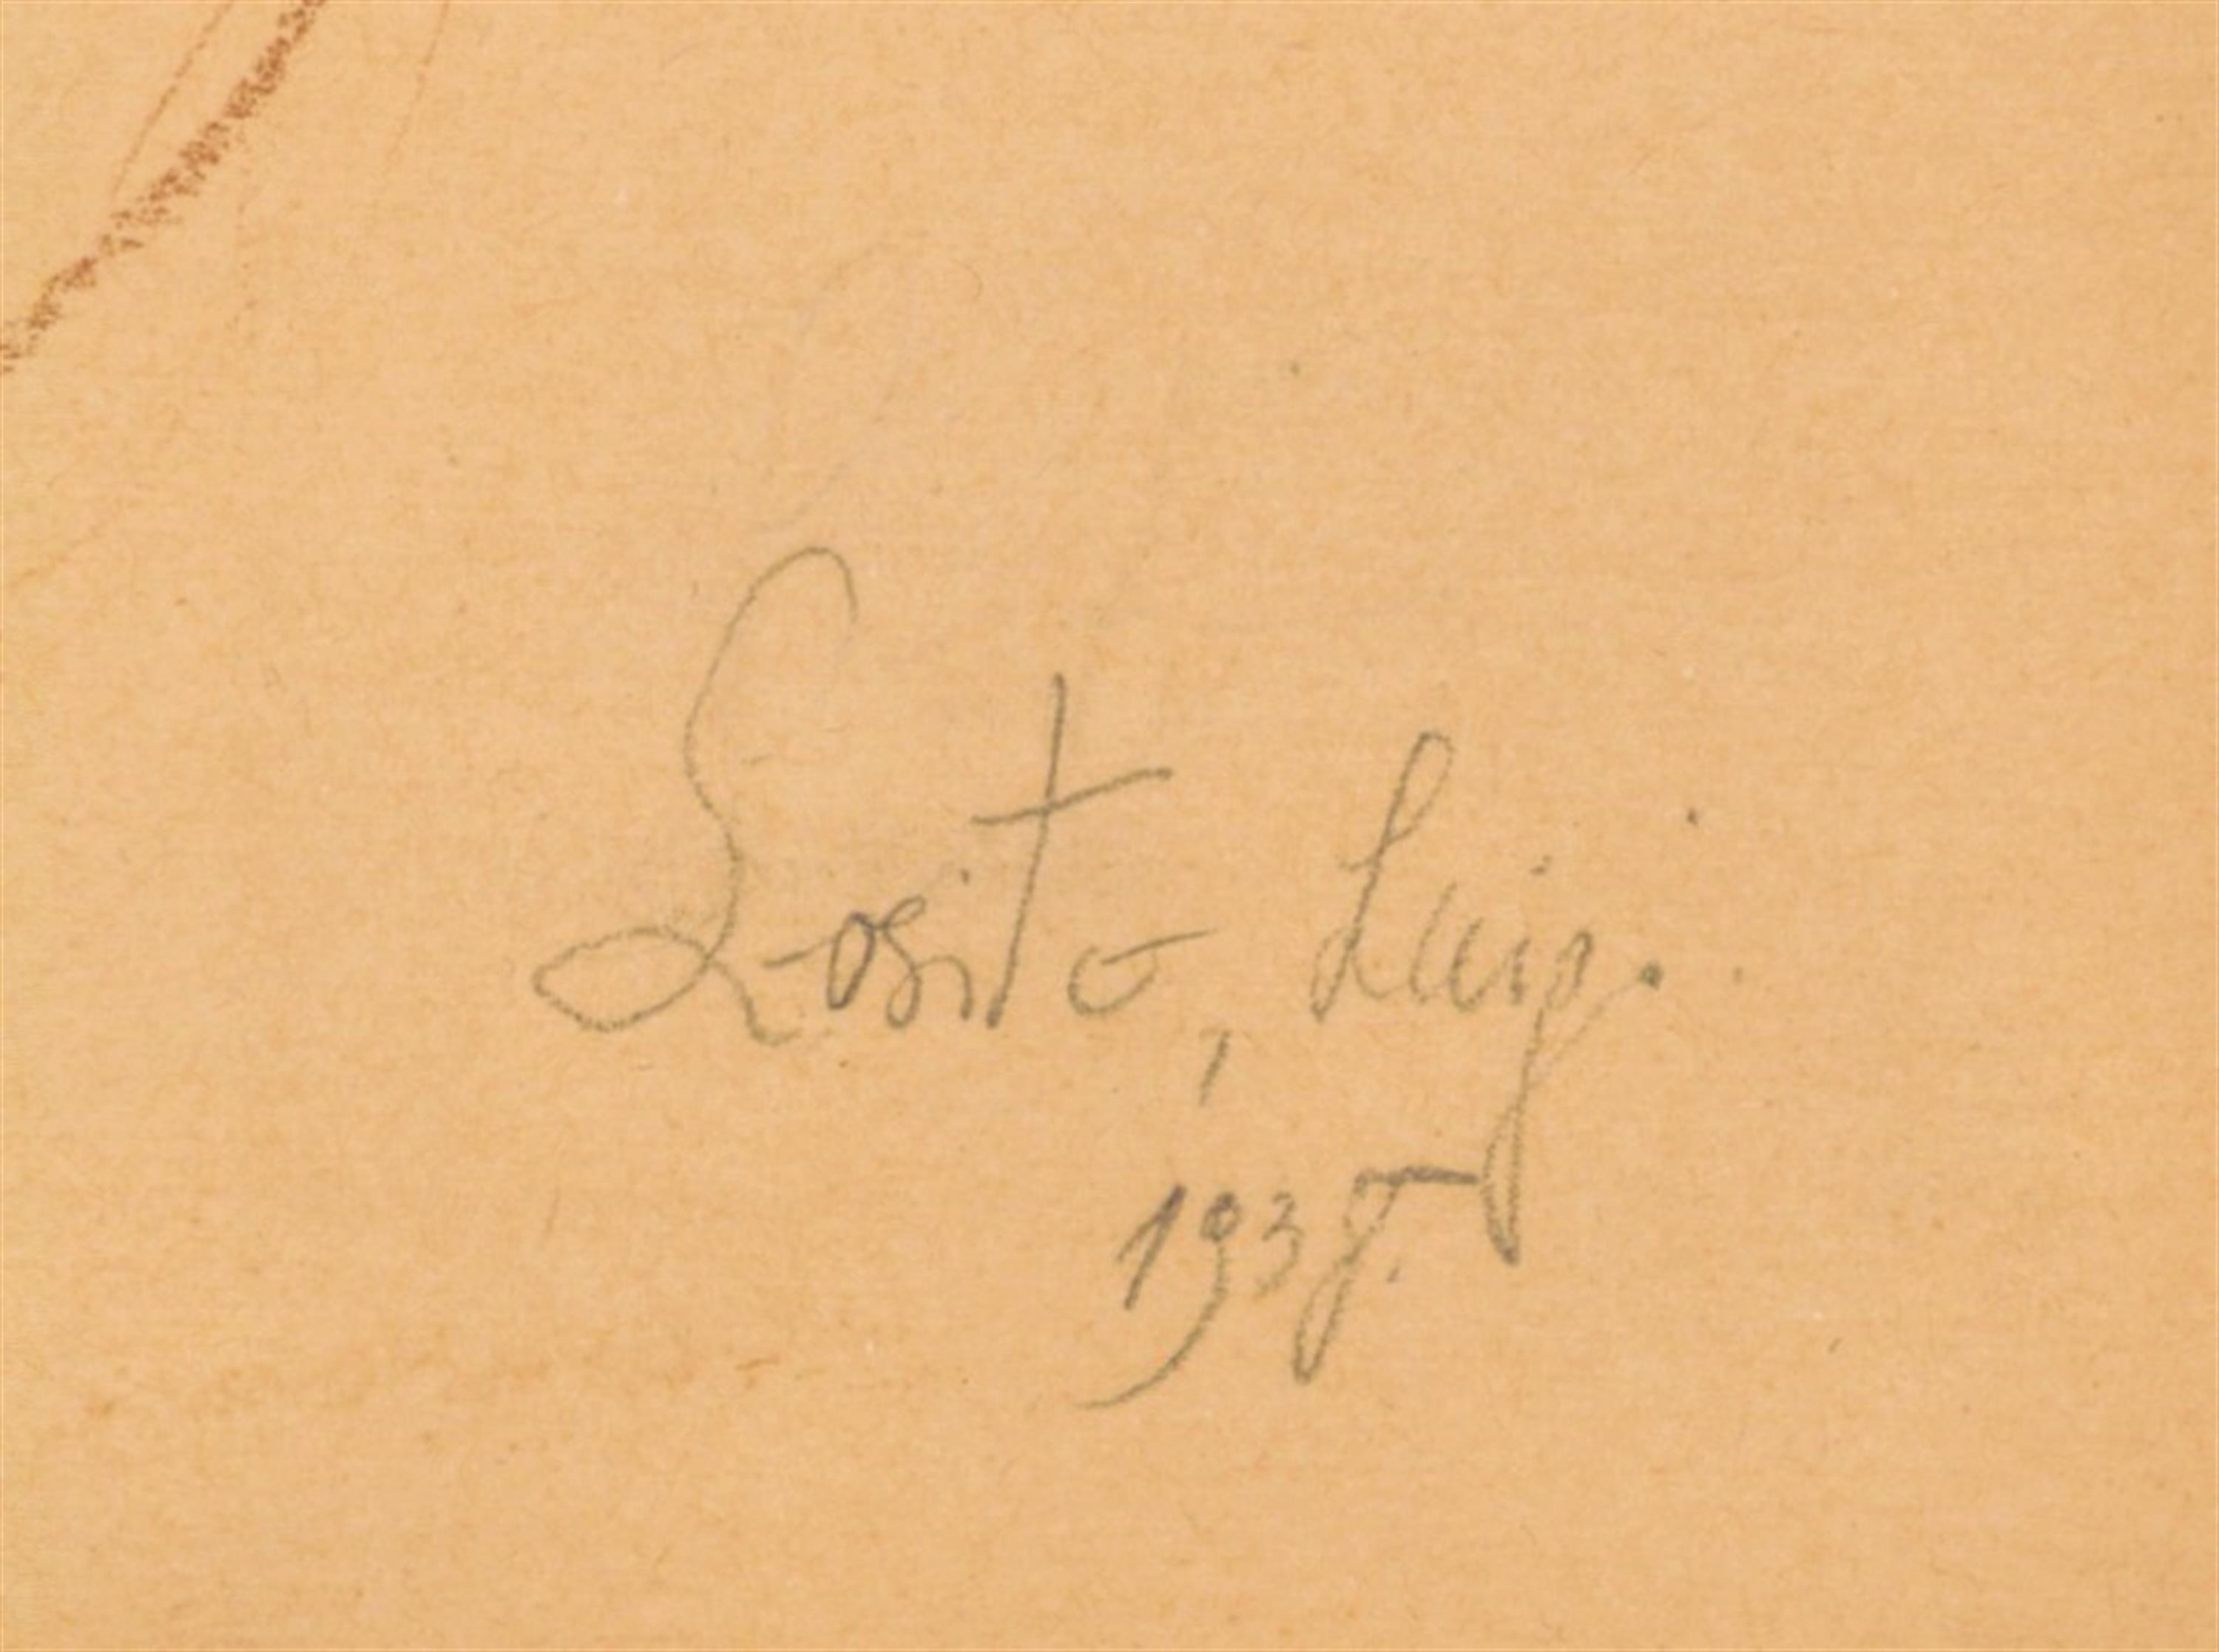 Losito, Luigi.
1938.